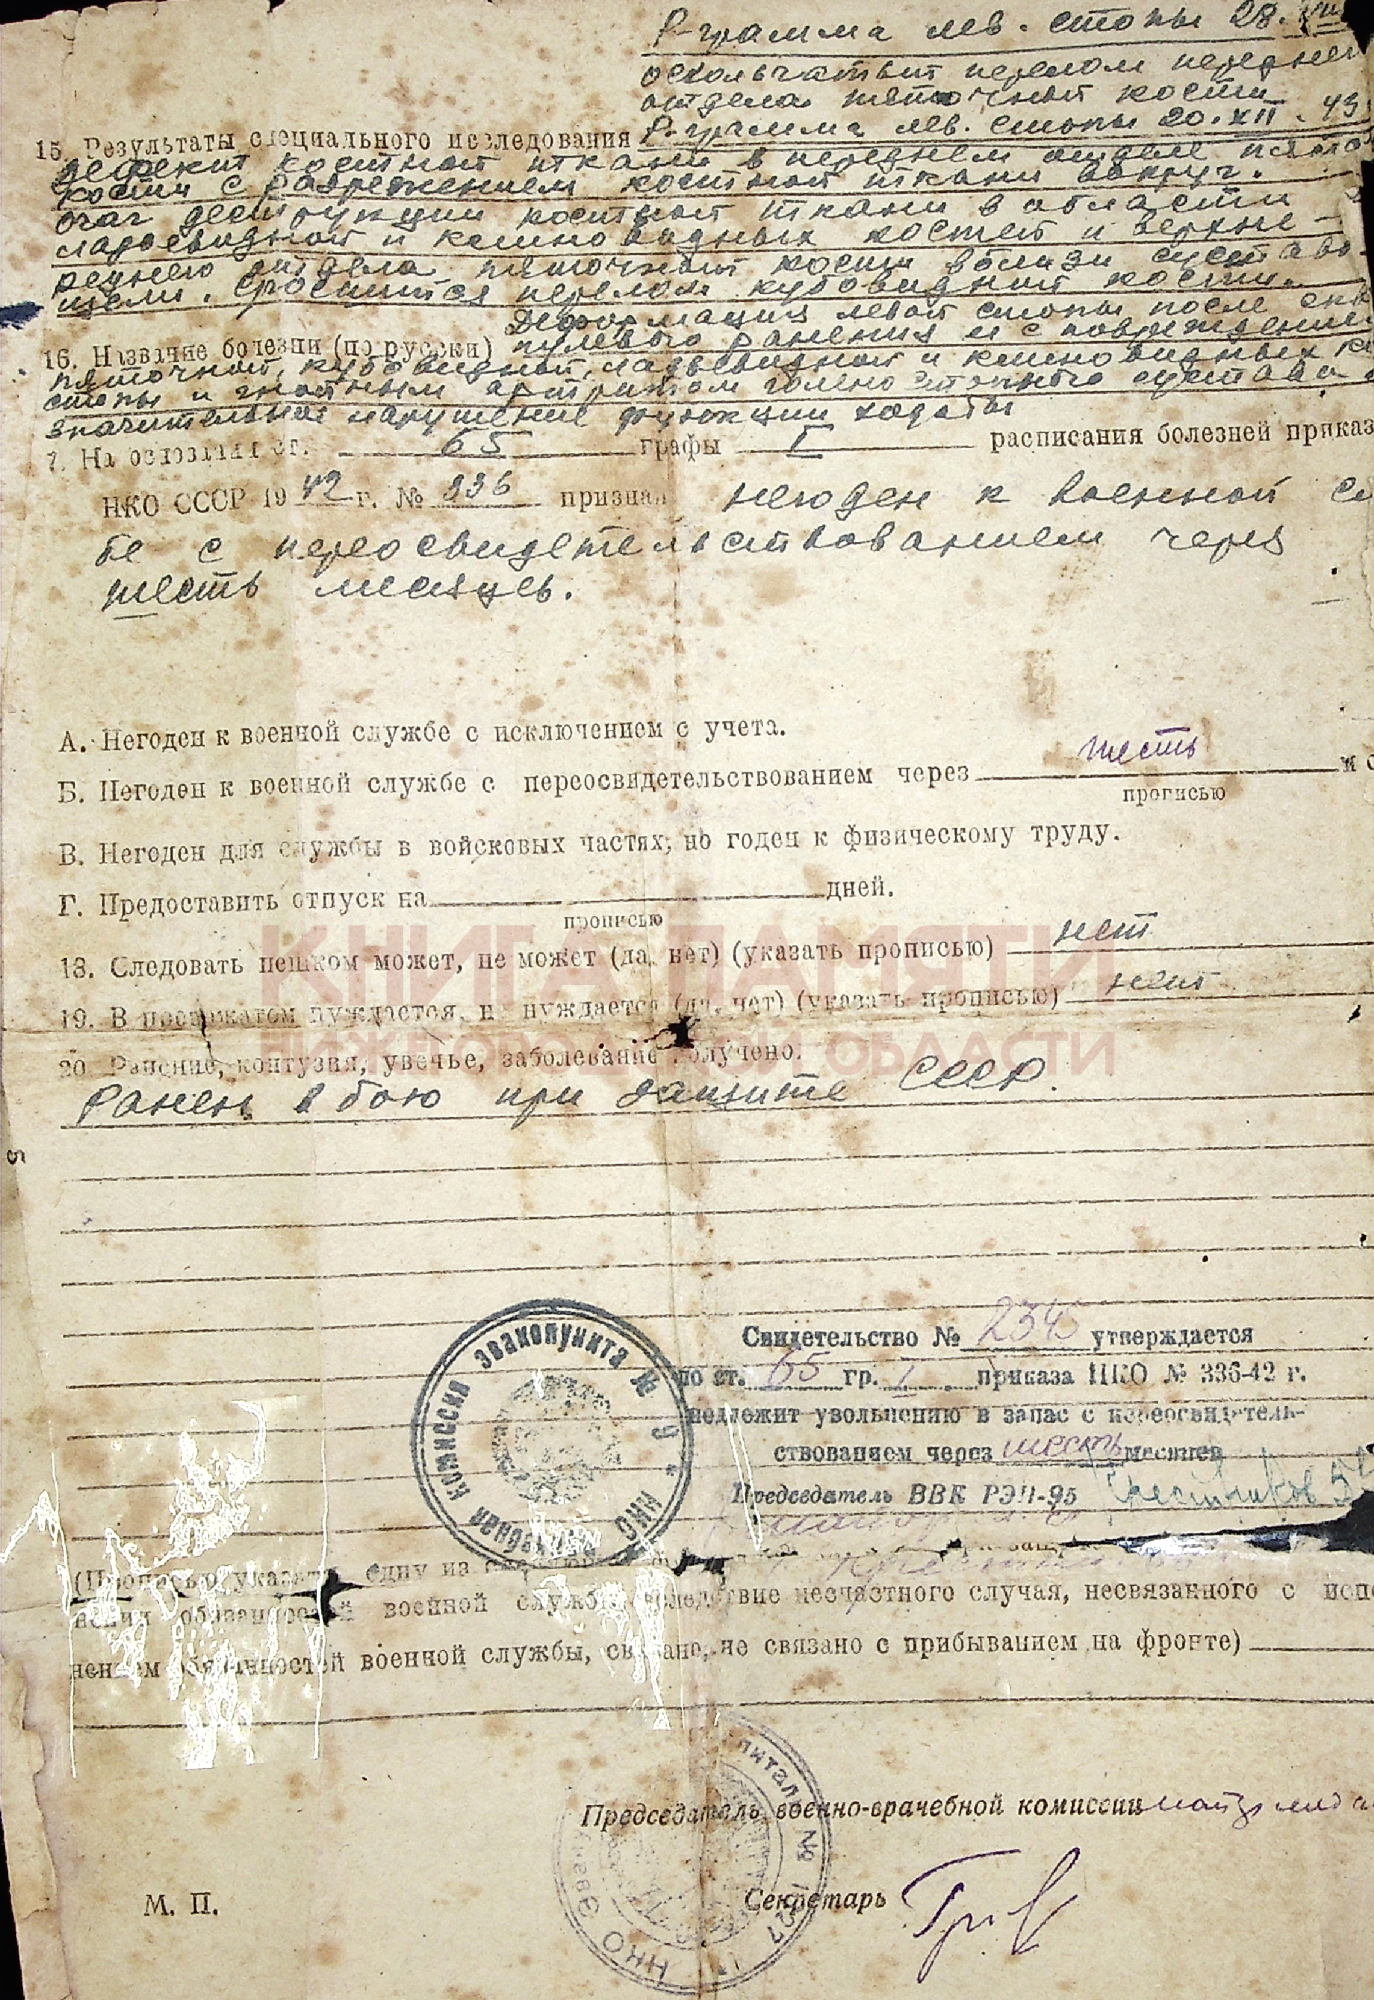 Р-грамма лев. стопы 28.VIII
оскольчатый перелом переднего
отдела пяточной кости
15. Результаты специального исследования Р-грамма лев. стопы 20.XII.43
дефект костной ткани в переднем отделе пяточ
кости с разрежением костной ткани вокруг.
очаг деструкции костной ткани в области
ладьевидной и клиновидных костей и верхне-
реднего отдела пяточной кости вблизи суставн.
щели. Сросшийся перелом кубовидной кости.
Деформация левой стопы после скв
16. Название болезни (по русски) пулевого ранения и с повреждением
пяточной, кубовидной, ладьевидной и клиновидных ко
стопы и гнойным артритом голеностопного сустава
значительное нарушение функции ходьбы
7. На основании ст. 65 графы I расписания болезней приказ
НКО СССР 1942 г. № 336 признан негоден к военной сл
бе с переосвидетельствованием через
шесть месяцев.
А. Негоден к военной службе с исключением с учета.
Б. Негоден к военной службе с переосвидетельствованием через шесть
прописью
В. Негоден для службы в войсковых частях, но годен к физическому труду.
Г. Предоставить отпуск на дней.
прописью
КНИГА ПАМЯТИ
18. Следовать пешком может, не может (да, нет) (указать прописью) нет
19. В провожатом нуждается, не нуждается (да, нет) (указать прописью) нет
НИЖЕГОРОДСКОЙ ОБЛАСТИ
20. Ранение, контузия, увечье, заболевание получено.
Ранен в бою при защите СССР.
Свидетельство № 2345 утверждается
по ст. 65 гр. I приказа НКО № 336-42 г.
подлежит увольнению в запас с переосвидетель-
ствованием через шесть месяцев
Председатель ВВК РЭП-95
комиссия эвакопункта № НКО
(Прописью указать одну из
нения обязанностей военной службы, вследствие несчастного случая, несвязанного с испо
нением обязанностей военной службы, связано, не связано с прибыванием на фронте)
Председатель военно-врачебной комиссии
Секретарь
М. П.